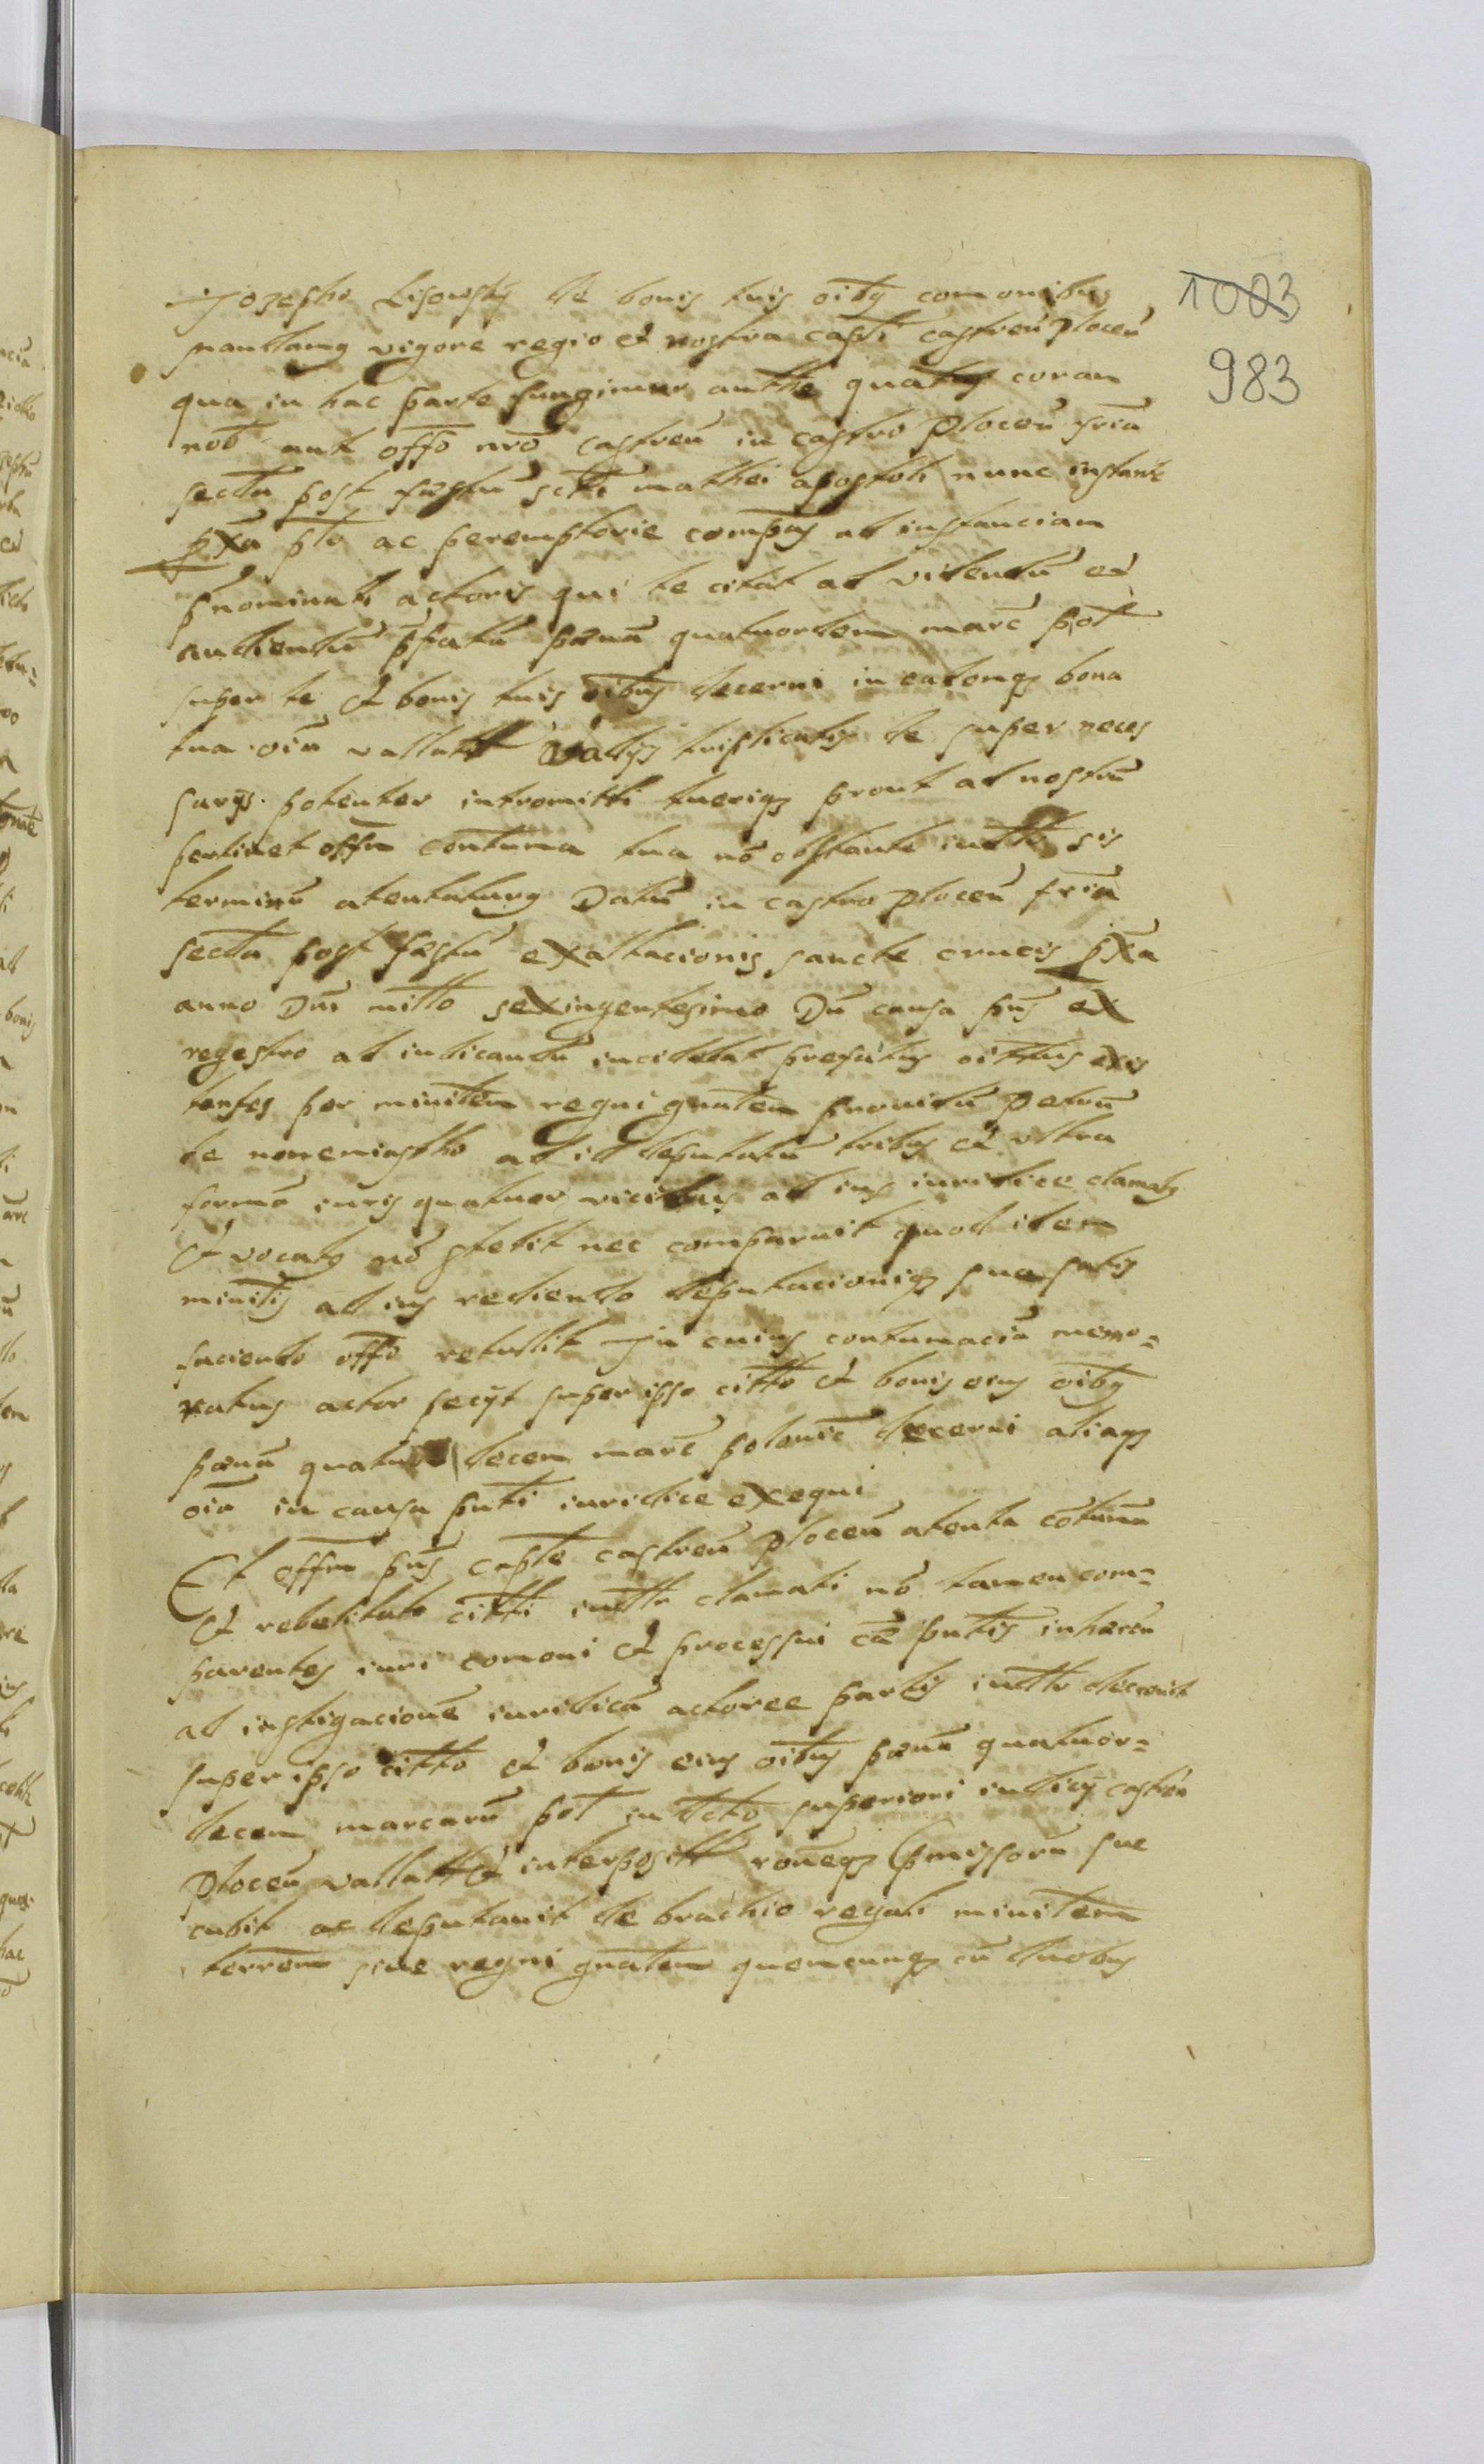 Jozepho Lisowskÿ de bonis tuis oibꝫ comonibus
mandamꝫ vigore regio et nostra capli castreñ Ploceñ
qua in hac parte fungimur authe quatꝫ coram
nob aut offo nro castreñ in castro Ploceñ feria
secda post festũ scti mathei apostoli nunc instante
pxa plo ac peremptorie compas ad instanciam
pnominati actoris qui te citat ad videndũ et
audiendũ pfatã pænã quatuordem marc pol
super te et bonis tuis oibus decerni in eademqꝫ bona
tua oia vallatt vadijs triplicatis de super neces
sarijs potenter intromitti tueriqꝫ prout ad nostrũ
pertinet offm contuma tua nõ obstante iudtr sis
terminũ atentaturꝫ Datũ in castro Ploceñ feria
secda post festũ exaltacionis sancte crucis pxa
anno Dni millo sexingentesimo Dũ causa pns ex
regestro ad iudicandũ incidebat prefatus cittus exis
tentes per minitem regni gnalem prouidũ Petrũ
de nonemiastho ad id deputatũ tribus et vltra
formã iuris quatuor vicibus ad ius iuridice clamatꝫ
et vocatꝫ nõ stetit nec comparuit quod idem
minitis ad ius rediendo deputacioniqꝫ sua satis
faciendo offo retullit In cuius contumaciã memo=
ratus actor fecÿt super ipso citto et bonis eius oibꝫ
pænã quatuor decem marc polonic decerni aliaqꝫ
oia in causa pnti iuridice exequi
Et offm pns caple castreñ Ploceñ atenta cõtuma
et rebelitate citti iudtr clamati nõ tamen com=
parentes iuri comoni et processui cæ pntis inhæreñ
ad instigacionẽ iuridicã actoree partis iudtr decreuit
super ipso citto et bonis eius oibus pænã quatuor=
decem marcarũ pol in dcto superiori iudicÿ castreñ
Ploceñ vallatt et interpositt roneqꝫ pmissorũ sue
cubit ac deputauit de brachio regali minitem
terrem siue regni gnalem quemcunqꝫ cũ duobus
1003
983